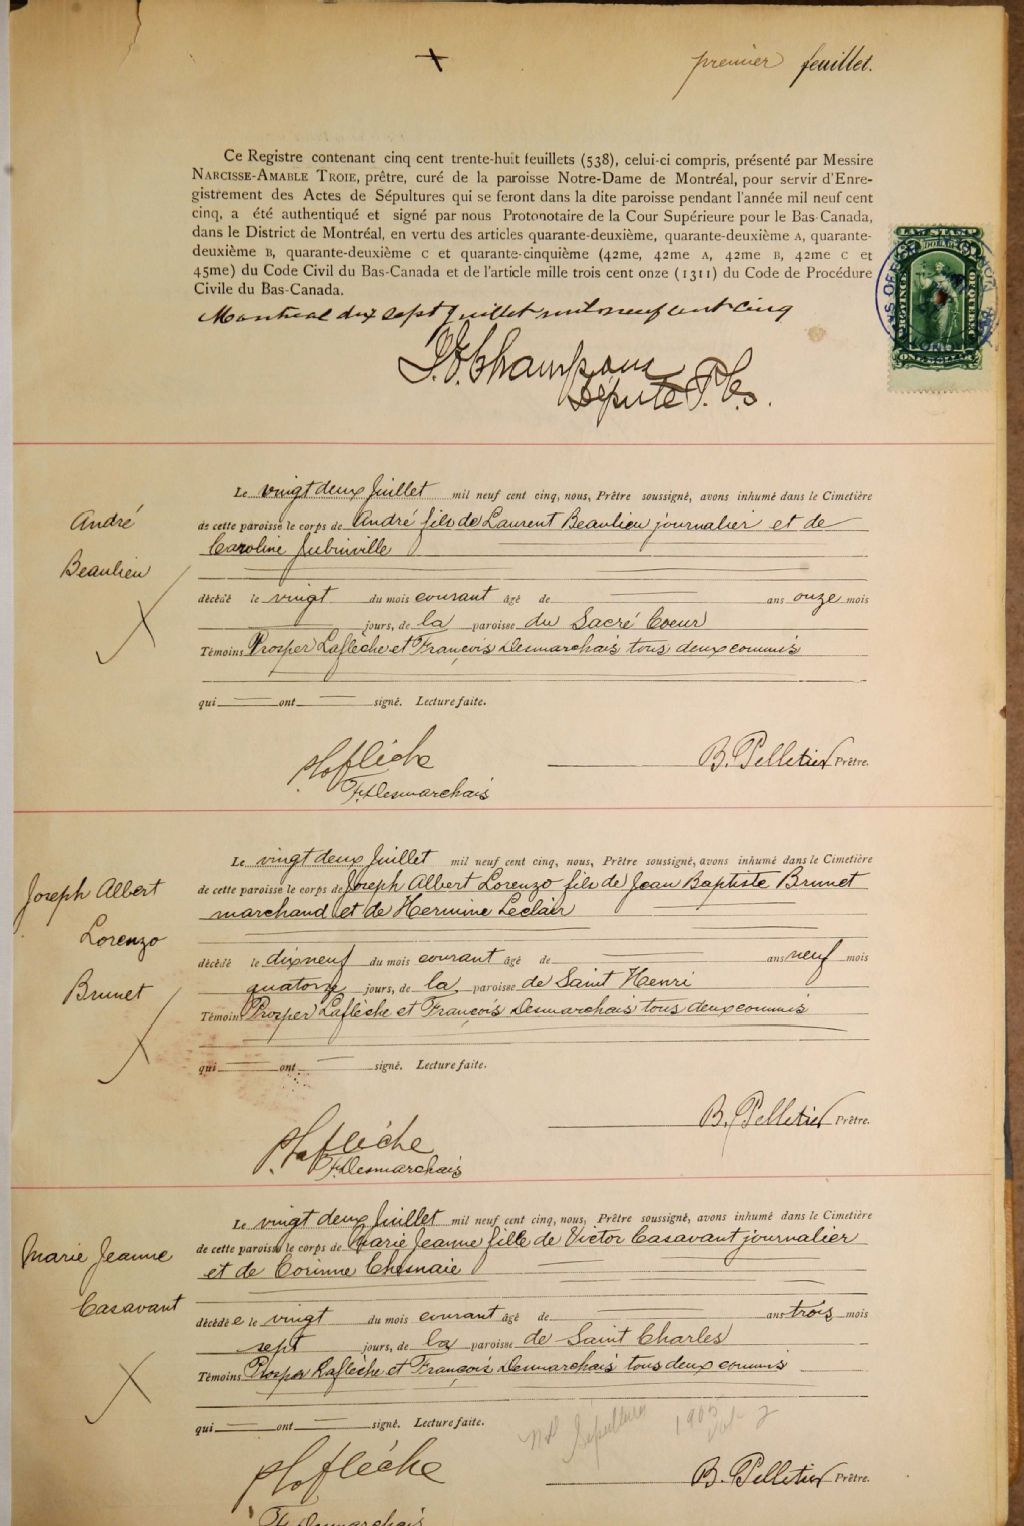 premier feuillet.
Ce Registre contenant cinq cent trente-huit feuillets (538), celui-ci compris, présenté par Messire
NARCISSE-AMABLE TROIE, prêtre, curé de la paroisse Notre-Dame de Montréal, pour servir d'Enre-
gistrement des Actes de Sépultures qui se feront dans la dite paroisse pendant l'année mil neuf cent
cinq, a été authentiqué et signé par nous Protonotaire de la Cour Supérieure pour le Bas-Canada,
dans le District de Montréal, en vertu des articles quarante-deuxième, quarante-deuxième A, quarante-
deuxième B, quarante-deuxième C et quarante-cinquième (42me, 42me A, 42me B, 42me C et
45me) du Code Civil du Bas-Canada et de l'article mille trois cent onze (1311) du Code de Procédure
Civile du Bas-Canada.
Montreal dix sept Juillet mil neuf cent cinq
Député P. C. S.
LAW STAMP
PROVINCE
ONE DOLLAR
André
Beaulieu
Le vingt deux Juillet mil neuf cent cinq, nous, Prêtre soussigné, avons inhumé dans le Cimetière
de cette paroisse le corps de André fils de Laurent Beaulieu journalier et de
Caroline Jubinville
décédé le vingt du mois courant âgé de ans onze mois
jours, de la paroisse du Sacré Coeur
Témoins Prosper Laflèche et François Desmarchais tous deux commis
qui ont signé. Lecture faite.
P Laflèche
F. Desmarchais
B. Pelletier Prêtre.
Joseph Albert
Lorenzo
Brunet
Le vingt deux Juillet mil neuf cent cinq, nous, Prêtre soussigné, avons inhumé dans le Cimetière
de cette paroisse le corps de Joseph Albert Lorenzo fils de Jean Baptiste Brunet
marchand et de Hermine Leclair
décédé le dix neuf du mois courant âgé de ans neuf mois
quatorze jours, de la paroisse de Saint Henri
Témoins Prosper Laflèche et François Desmarchais tous deux commis
qui ont signé. Lecture faite.
P. Laflèche
F. Desmarchais
B. Pelletier Prêtre.
Marie Jeanne
Casavant
Le vingt deux Juillet mil neuf cent cinq, nous, Prêtre soussigné, avons inhumé dans le Cimetière
de cette paroisse le corps de Marie Jeanne fille de Victor Casavant journalier
et de Corinne Chesnaie
décédée le vingt du mois courant âgé de ans trois mois
sept jours, de la paroisse de Saint Charles
Témoins Prosper Laflèche et François Desmarchais tous deux commis
qui ont signé. Lecture faite.
ND Sépultures 1905 Vol 2
P Laflèche
F. Desmarchais
B. Pelletier Prêtre.